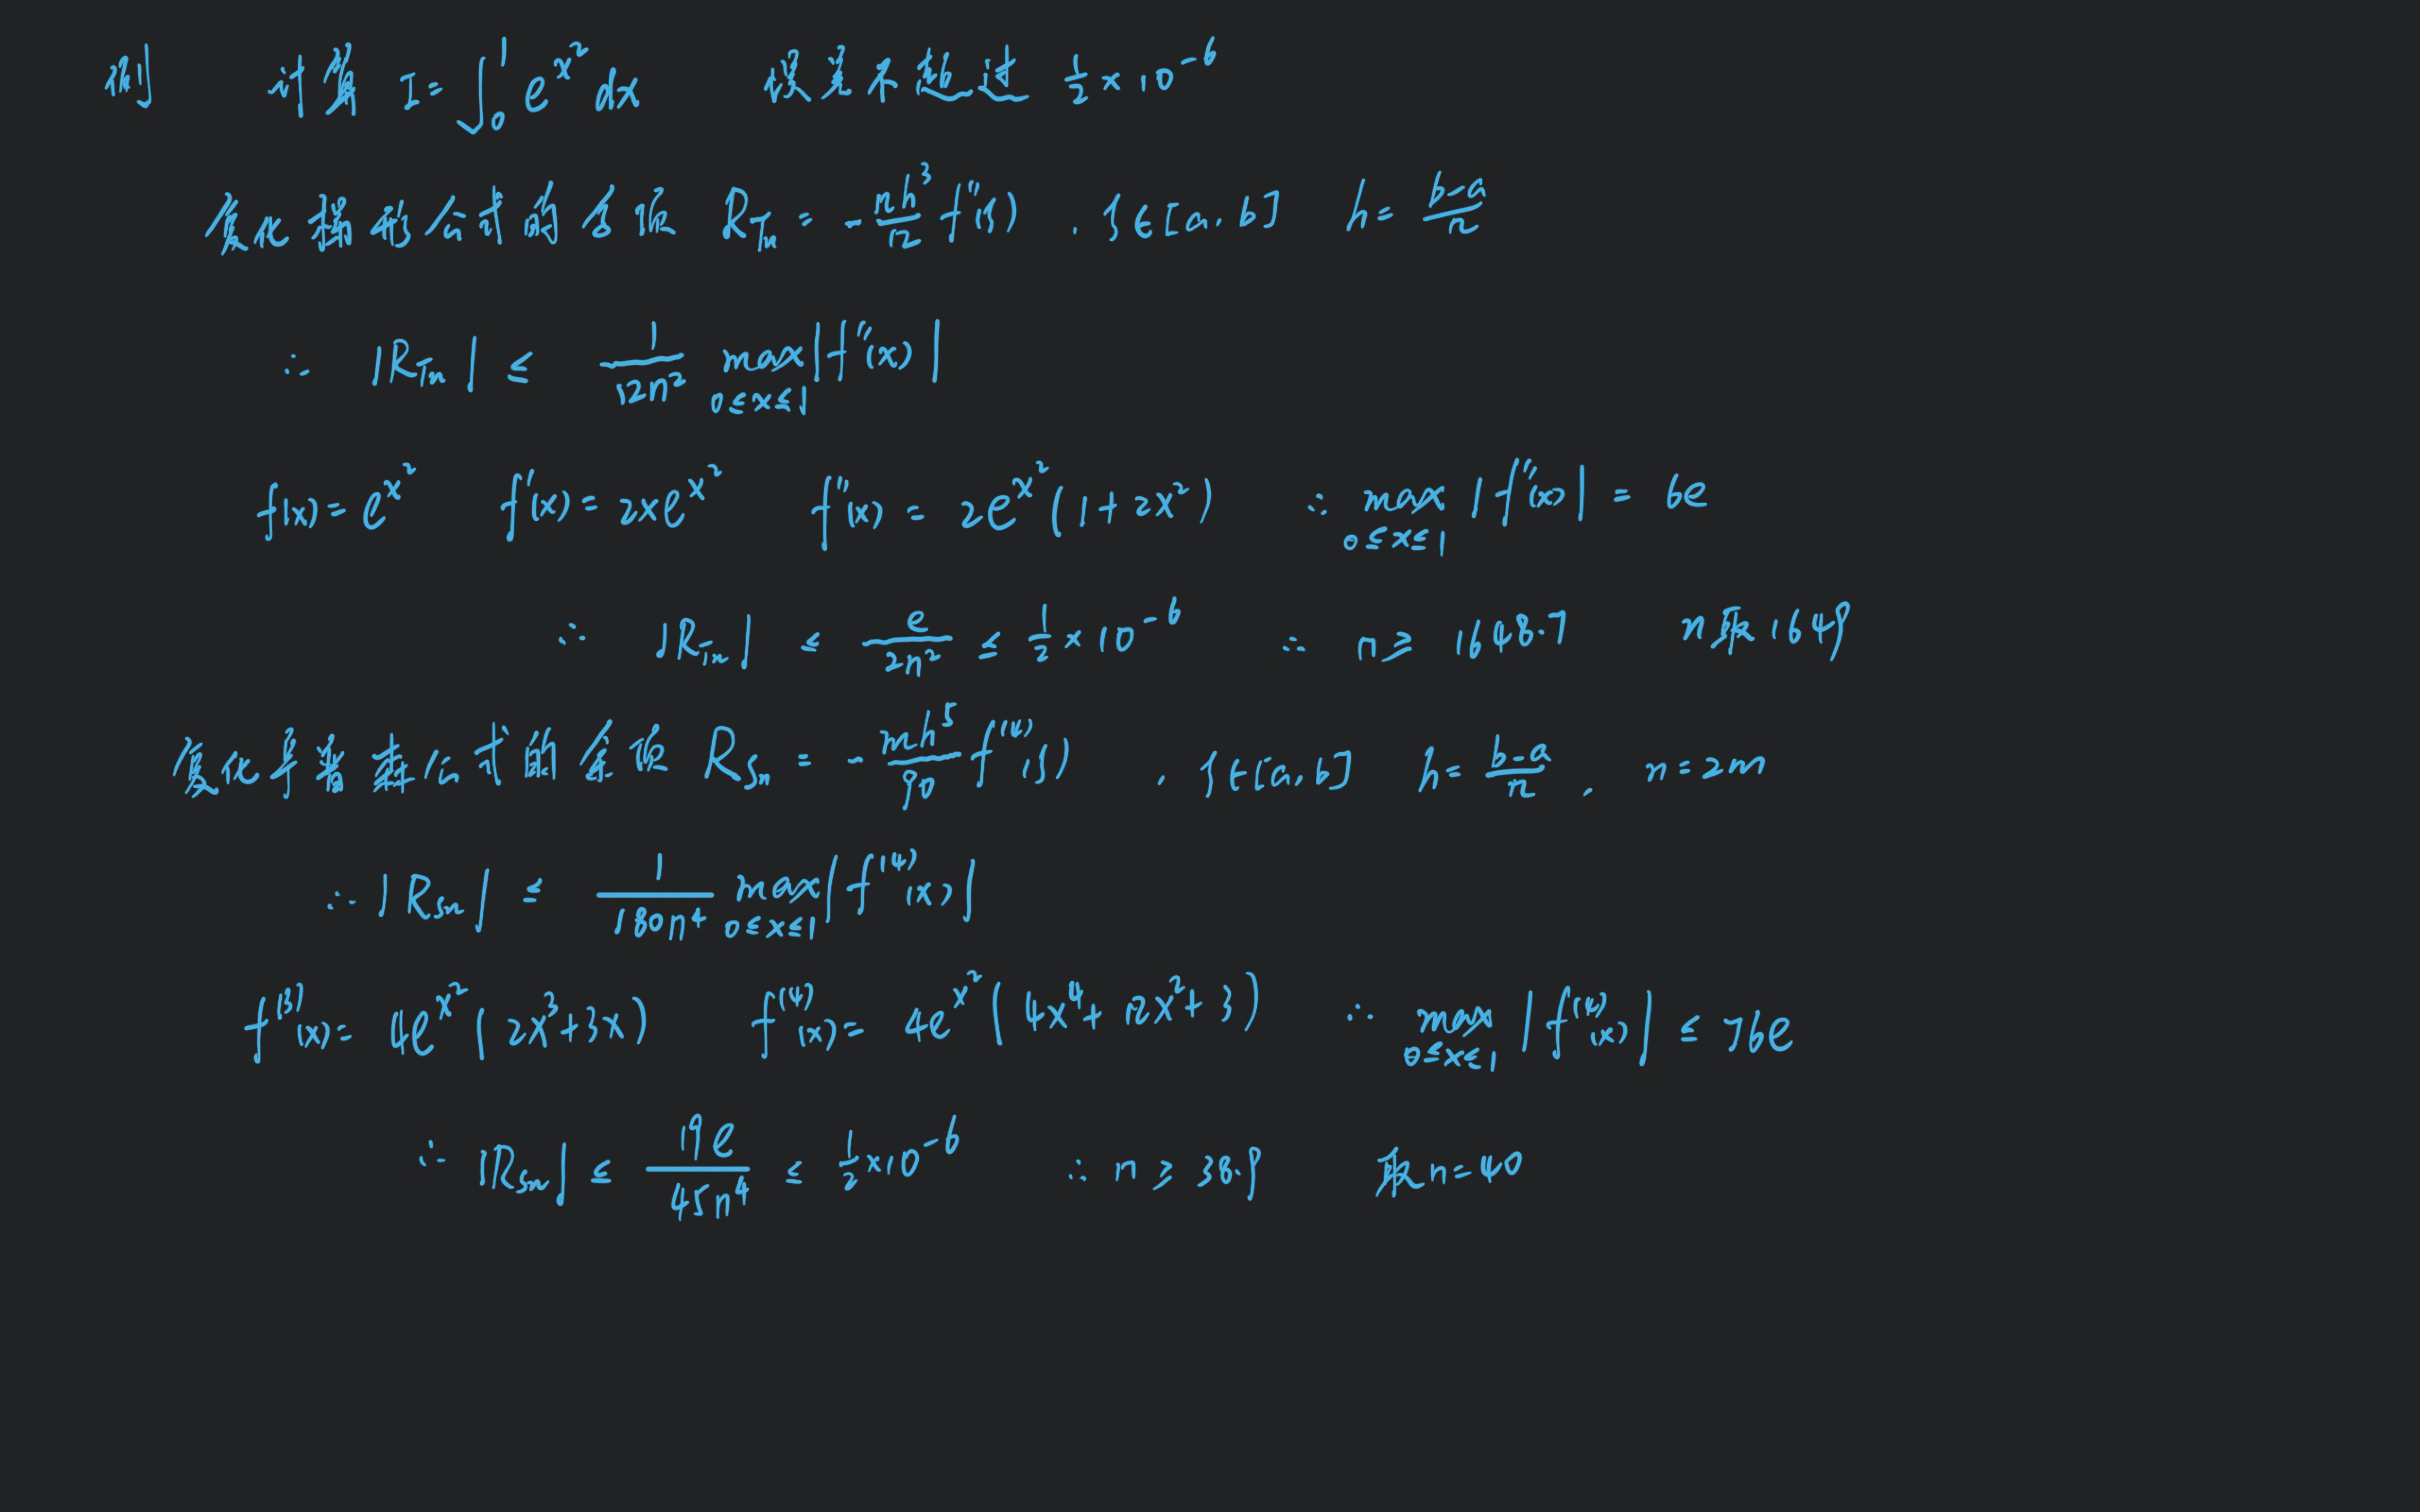 例 计算 I = ∫₀¹ e^{x²} dx 误差不超过 1/2 × 10^{-6}
复化梯形公式的余项 R_{Tn} = -nh³/12 f''(ξ) , ξ∈[a,b] h = (b-a)/n
∴ |R_{Tn}| ≤ 1/(12n²) max_{0≤x≤1} |f''(x)|
f(x) = e^{x²} f'(x) = 2xe^{x²} f''(x) = 2e^{x²}(1+2x²) ∴ max_{0≤x≤1} |f''(x)| = 6e
∴ |R_{Tn}| ≤ e/(2n²) ≤ 1/2 × 10^{-6} ∴ n ≥ 1648.7 n取1649
复化辛普森公式的余项 R_{Sn} = -mh⁵/90 f^{(4)}(ξ) , ξ∈[a,b] h = (b-a)/n , n=2m
∴ |R_{Sn}| ≤ 1/(180n⁴) max_{0≤x≤1} |f^{(4)}(x)|
f^{(3)}(x) = 4e^{x²}(2x³+3x) f^{(4)}(x) = 4e^{x²}(4x⁴+12x²+3) ∴ max_{0≤x≤1} |f^{(4)}(x)| ≤ 76e
∴ |R_{Sn}| ≤ 19e/(45n⁴) ≤ 1/2 × 10^{-6} ∴ n ≥ 38.9 取n=40